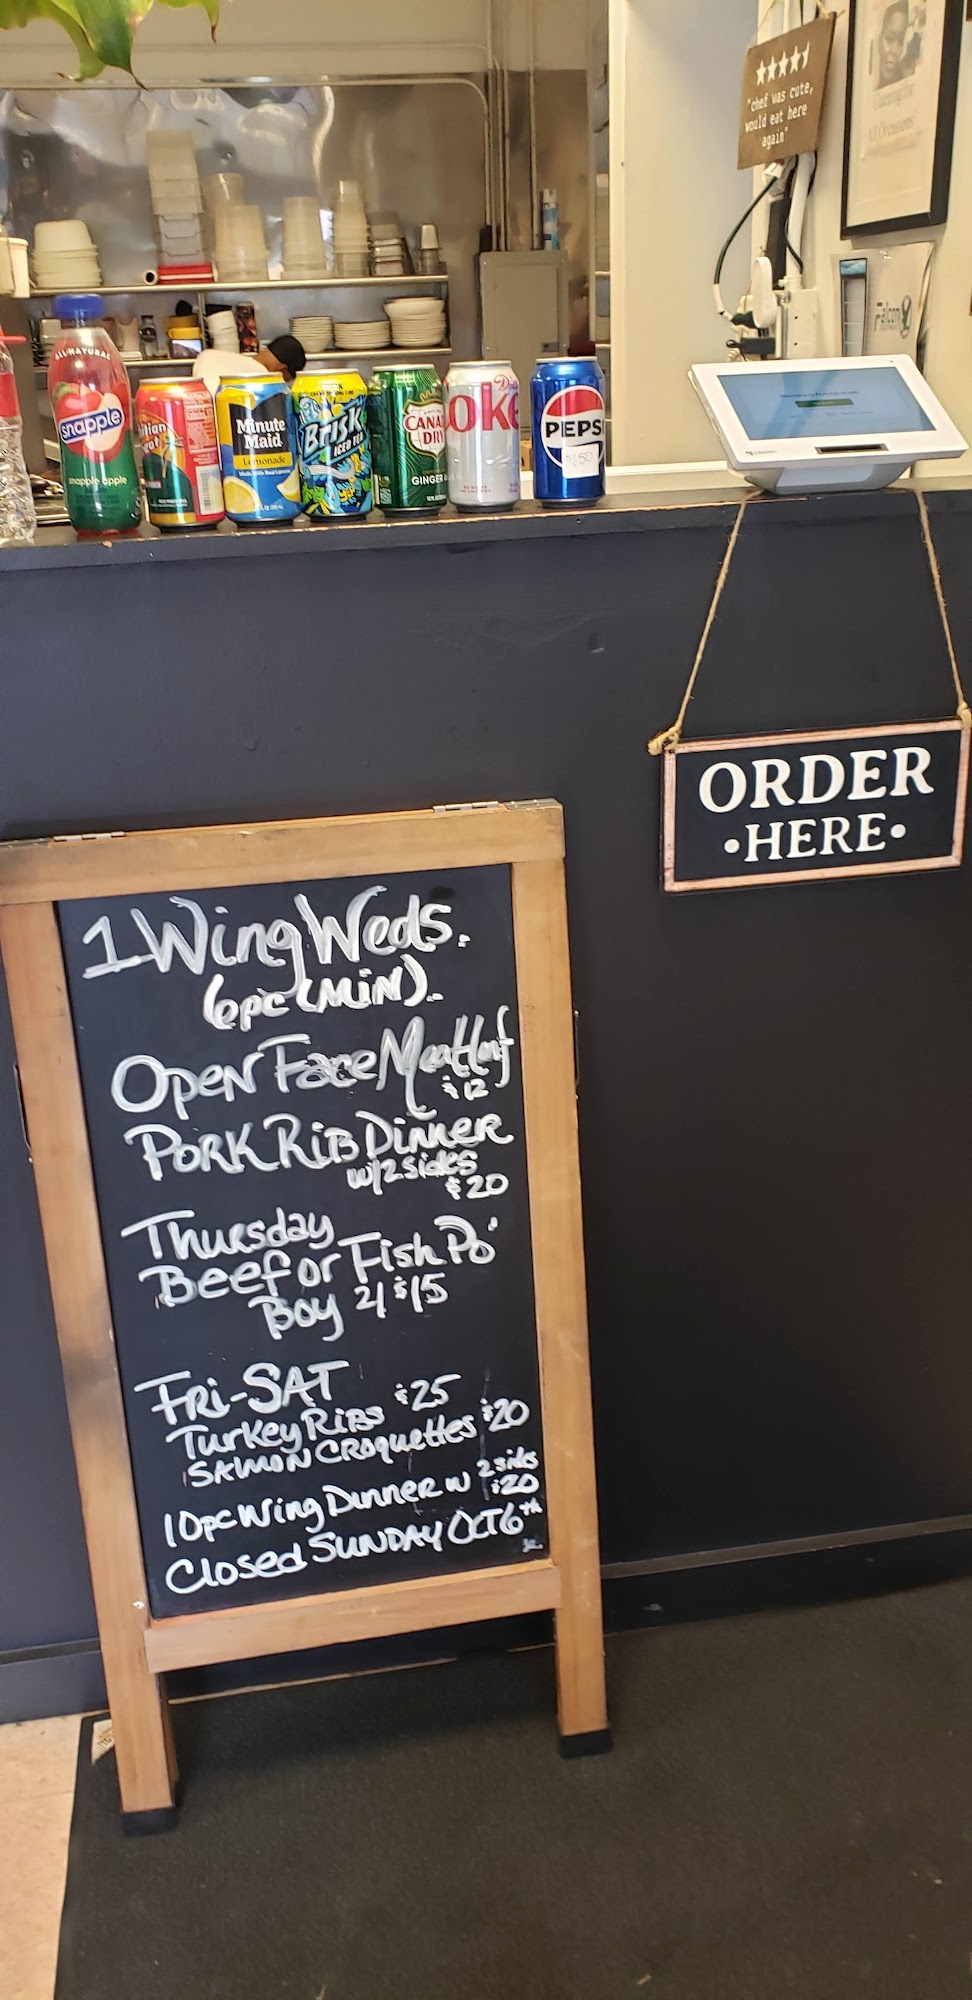 "chef was cute,
would eat here
again"
Catering for
All Occasions!
Falcon
ALL NATURAL
snapple
snapple apple
Minute
Maid
Lemonade
Brisk
ICED TEA
CANADA
DRY
GINGER ALE
Diet
oke
PEPSI
$1.50
ORDER
•HERE•
1 Wing Weds.
6pc (MIN).
OPEN Face Meatloaf
$12
PORK RIB DINNER
w/2 sides
$20
Thursday
Beef or Fish Po'
Boy 2/$15
FRi-SAT
Turkey RiBs $25
SALMON CROquettes $20
10pc Wing Dinner w 2 sides
$20
Closed SUNDAY OCT 6th